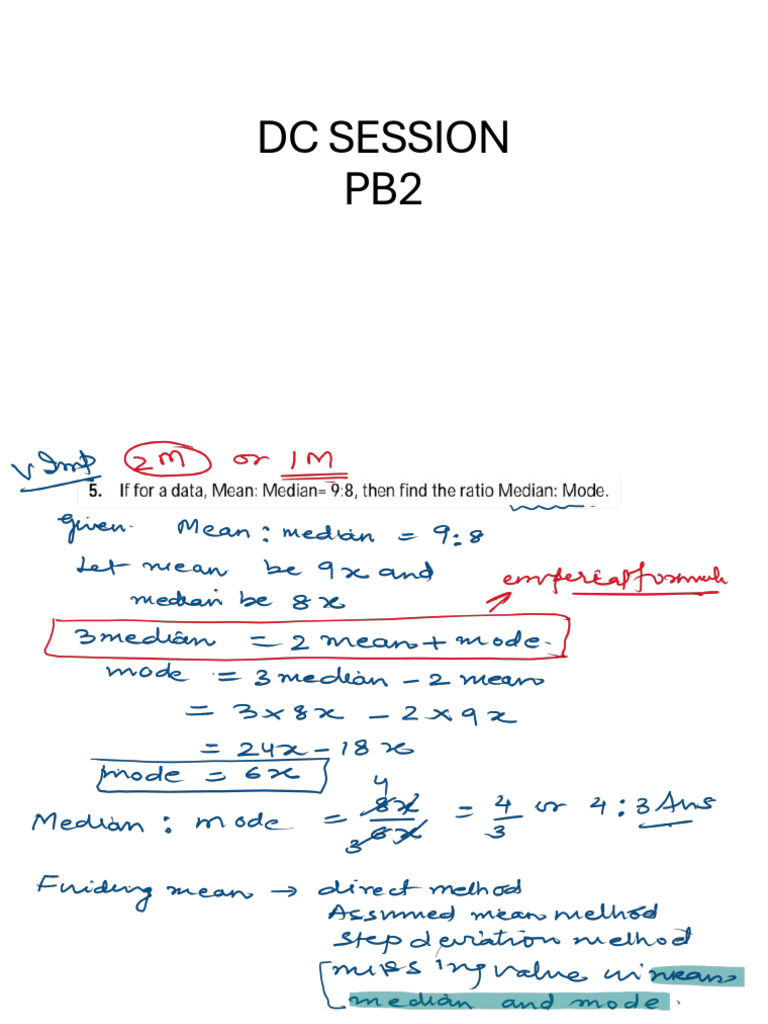 DC SESSION
PB2
v Imp 2M or 1M
5. If for a data, Mean: Median= 9:8, then find the ratio Median: Mode.
given. Mean : median = 9:8
Let mean be 9x and
median be 8x
emperical formula
3 median = 2 mean + mode.
mode = 3 median - 2 mean
= 3 × 8x - 2 × 9x
= 24x - 18x
mode = 6x
Median : mode = 8x/6x = 4/3 or 4 : 3 Ans
4
3
Finiding mean → direct method
Assumed mean method
Step deviation method
missing value in mean
median and mode.